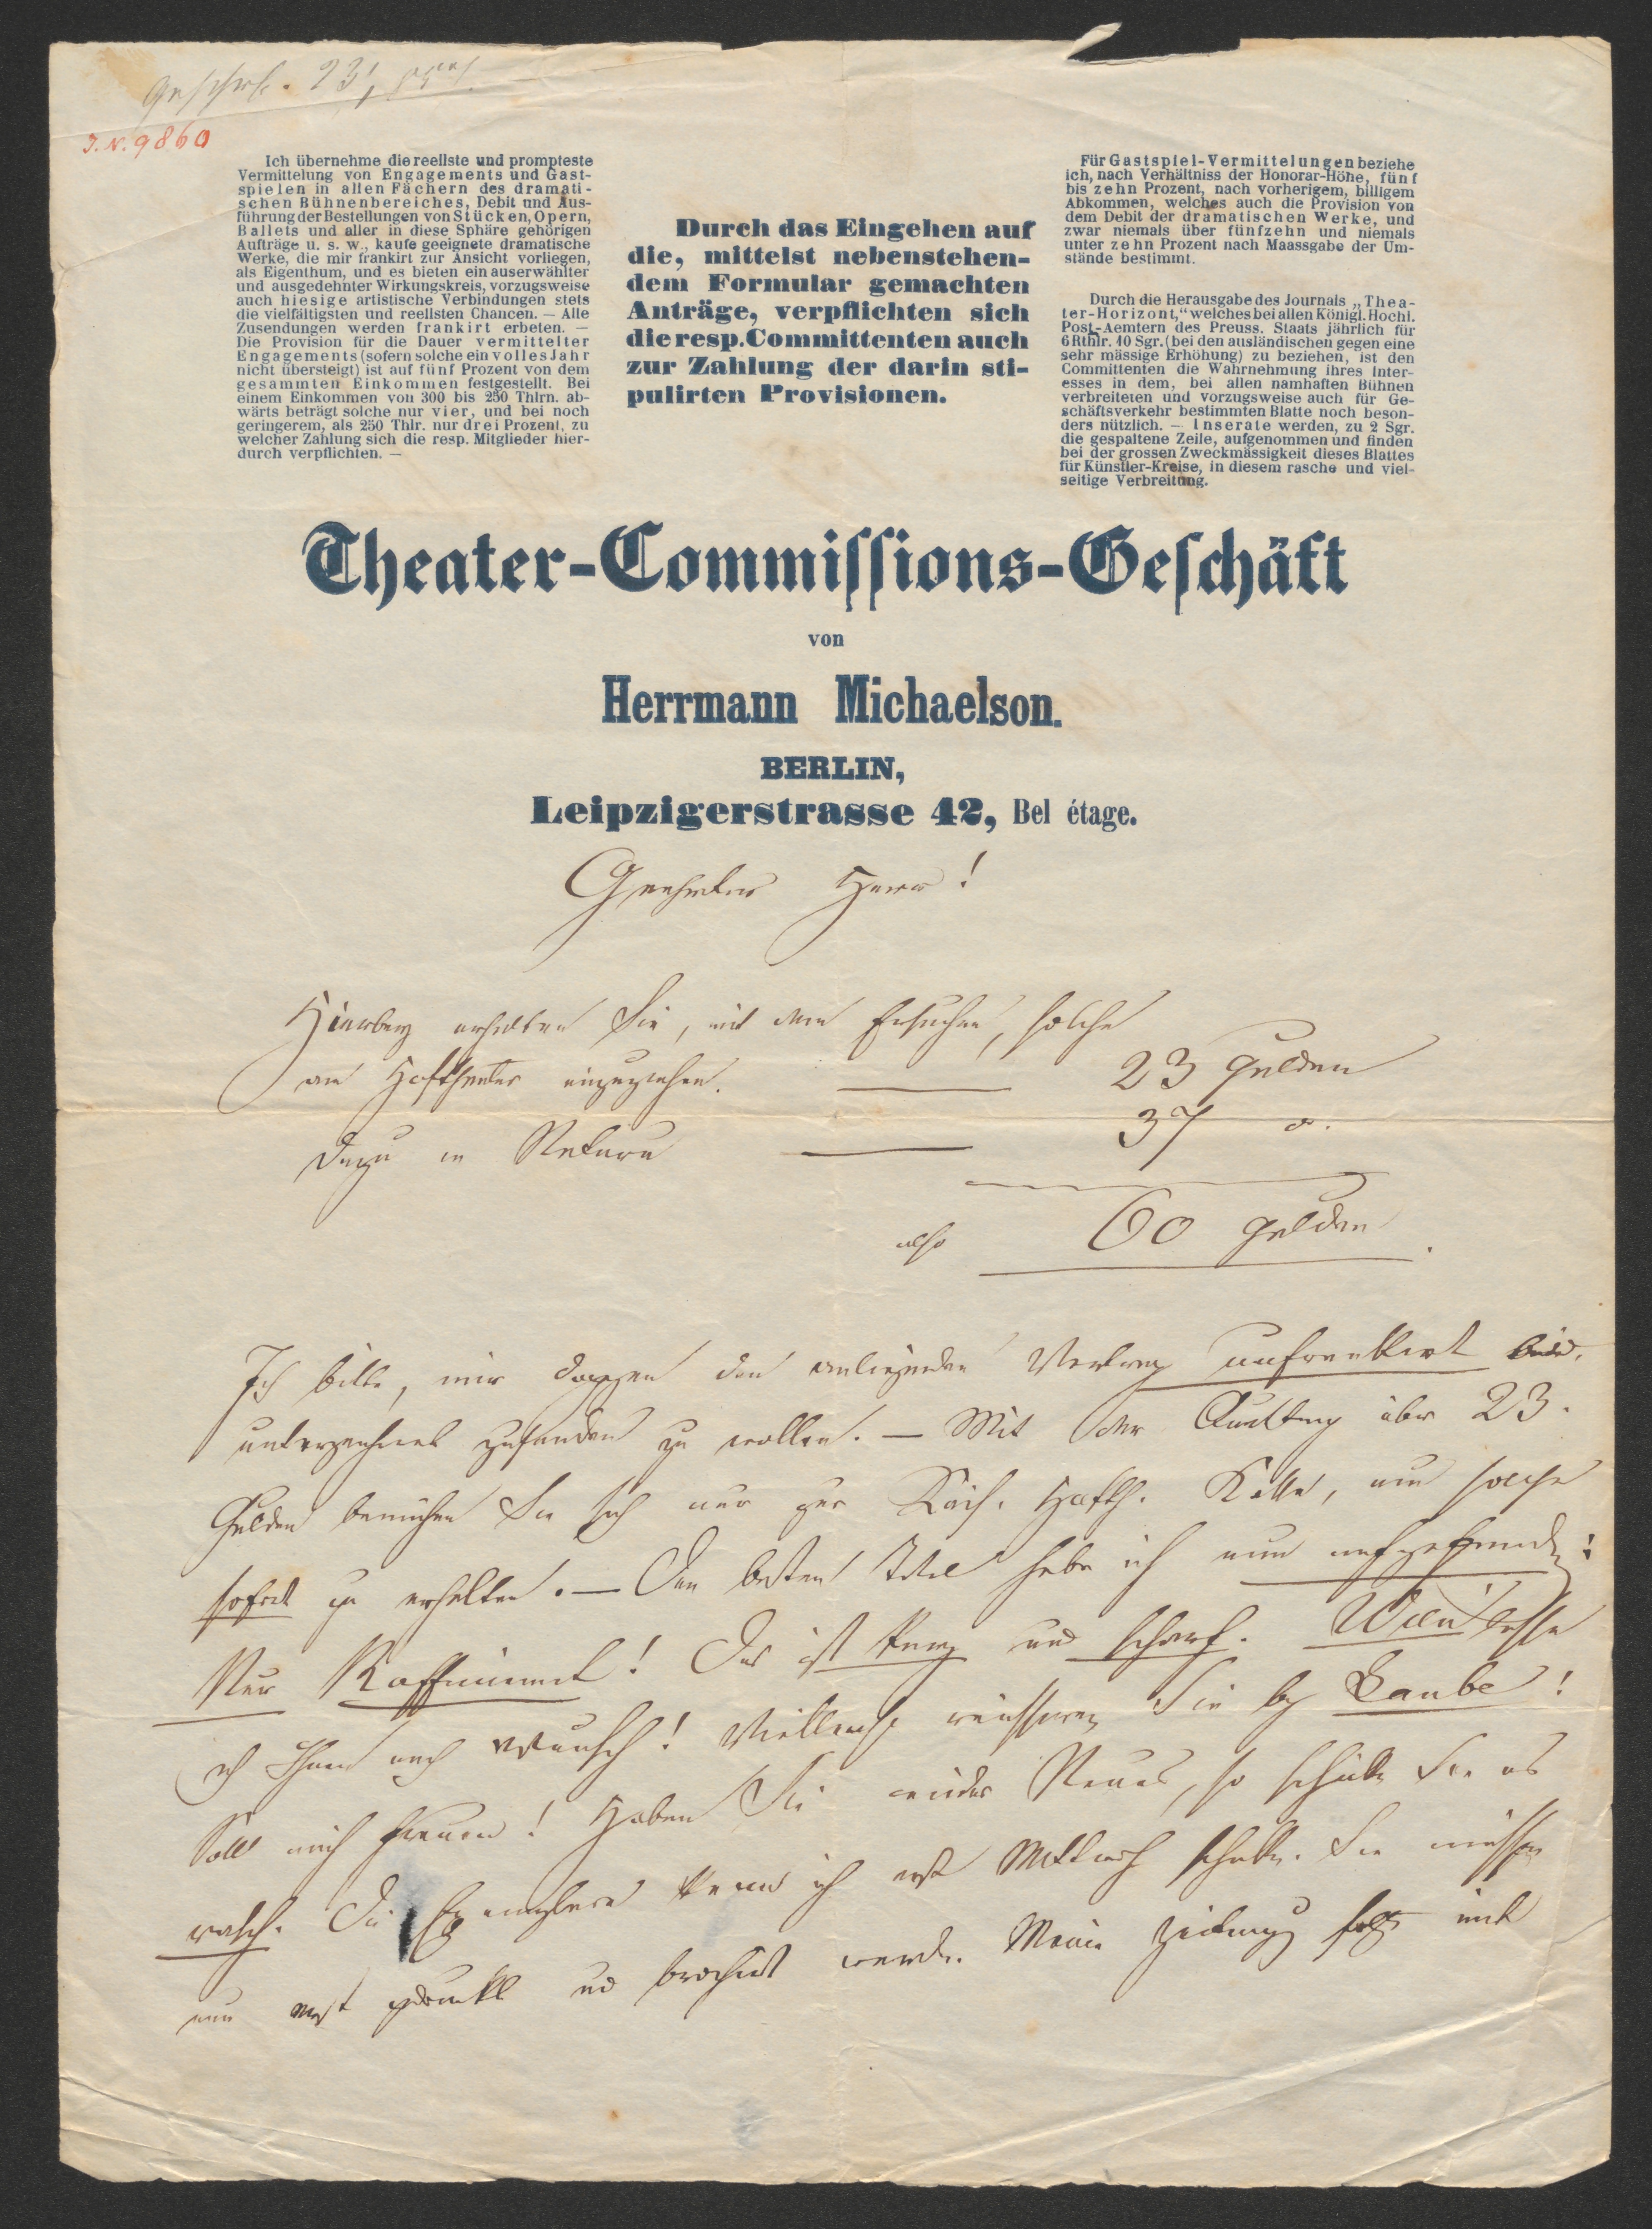 J.N. 9860
Ich übernehme die reellste und prompteste
Vermittelung von Engagements und Gast-
spielen in allen Fächern des dramati-
schen Bühnenbereiches, Debit und Aus-
führung der Bestellungen von Stücken, Opern,
Ballets und aller in diese Sphäre gehörigen
Aufträge u. s. w., kaufe geeignete dramatische
Werke, die mir frankirt zur Ansicht vorliegen,
als Eigenthum, und es bieten ein auserwählter
und ausgedehnter Wirkungskreis, vorzugsweise
auch hiesige artistische Verbindungen stets
die vielfältigsten und reellsten Chancen. — Alle
Zusendungen werden frankirt erbeten. —
Die Provision für die Dauer vermittelter
Engagements (sofern solche ein volles Jahr
nicht übersteigt) ist auf fünf Prozent von dem
gesammten Einkommen festgestellt. Bei
einem Einkommen von 300 bis 250 Thlrn. ab-
wärts beträgt solche nur vier, und bei noch
geringerem, als 250 Thlr. nur drei Prozent, zu
welcher Zahlung sich die resp. Mitglieder hier-
durch verpflichten. —
Durch das Eingehen auf
die, mittelst nebenstehen-
dem Formular gemachten
Anträge, verpflichten sich
die resp. Committenten auch
zur Zahlung der darin sti-
pulirten Provisionen.
Für Gastspiel-Vermittelungen beziehe
ich, nach Verhältniss der Honorar-Höhe, fünf
bis zehn Prozent, nach vorherigem, billigem
Abkommen, welches auch die Provision von
dem Debit der dramatischen Werke, und
zwar niemals über fünfzehn und niemals
unter zehn Prozent nach Maassgabe der Um-
stände bestimmt.
Durch die Herausgabe des Journals „Thea-
ter-Horizont,“ welches bei allen Königl. Hochl.
Post-Aemtern des Preuss. Staats jährlich für
6 Rthlr. 10 Sgr. (bei den ausländischen gegen eine
sehr mässige Erhöhung) zu beziehen, ist den
Committenten die Wahrnehmung ihres Inter-
esses in dem, bei allen namhaften Bühnen
verbreiteten und vorzugsweise auch für Ge-
schäftsverkehr bestimmten Blatte noch beson-
ders nützlich. — Inserate werden, zu 2 Sgr.
die gespaltene Zeile, aufgenommen und finden
bei der grossen Zweckmässigkeit dieses Blattes
für Künstler-Kreise, in diesem rasche und viel-
seitige Verbreitung.
Theater-Commiſſions-Geſchäft
von
Herrmann Michaelson.
BERLIN,
Leipzigerstrasse 42, Bel étage.
Geehrter Herr!
Hierbey erhalten Sie, mit dem Ersuchen, solche
am Hoftheater einzuziehen. — 23 Gulden
dazu in Natura — 37
also 60 Gulden.
Ich bitte, mir dagegen den anliegenden Vertrag unfrankirt
unterzeichnet zusenden zu wollen. — Mit der Quittung über 23.
Gulden bemühen Sie sich nur zur Hofth. um solche
sofort zu erhalten. — Den besten Titel habe ich nun aufgefunden:
Nur Raffinirt! Das ist kurz und scharf.
ich Ihnen nach Wunsch! Vielleicht reussiren Sie by Laube!
Soll mich freuen! Haben Sie wieder Neues, so schicken Sie es
rasch. Die Exemplare kann ich erst Mittwoch schicken. Sie müssen
nun erst gedruckt und brochirt werden. Meine Zeitung folgt mit